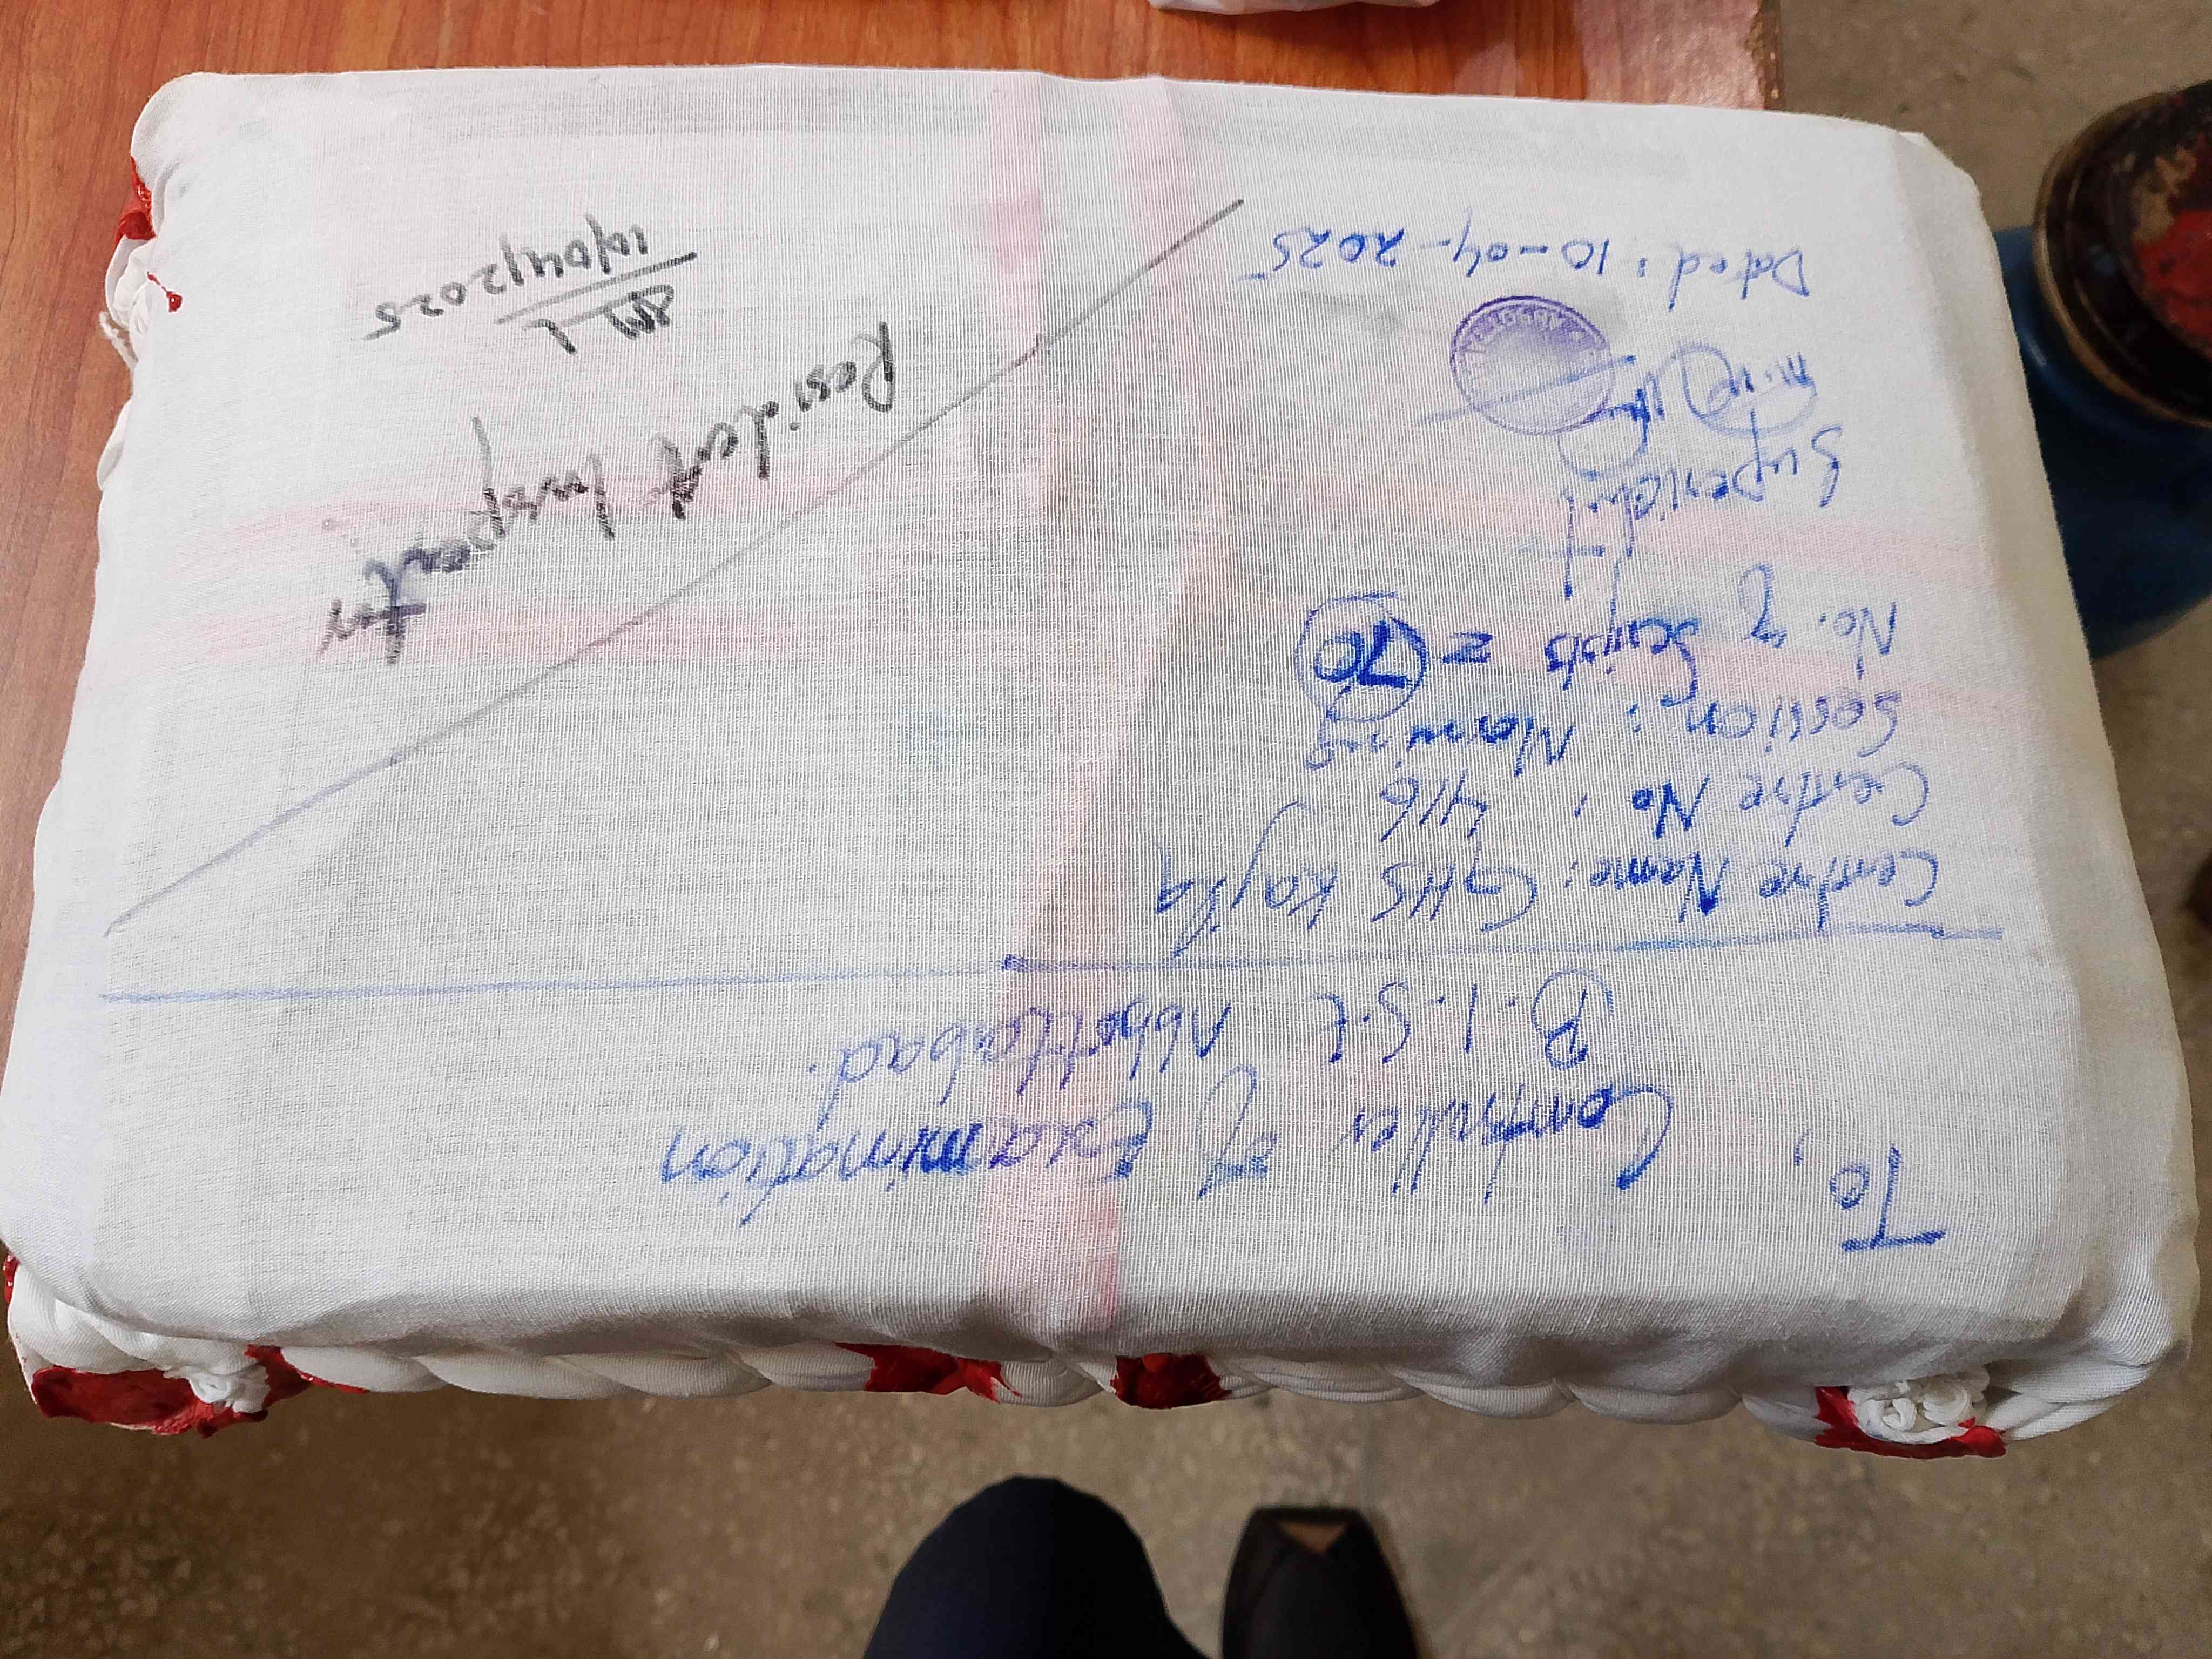 To,
Controller of Examination
B.I.S.E Abbottabad.
Centre Name: GHS Kajla
Centre No : 416
Session : Morning
No. of Scripts = 70
Superidnt
Dated: 10-04-2025
Resident Inspector
10/04/2025